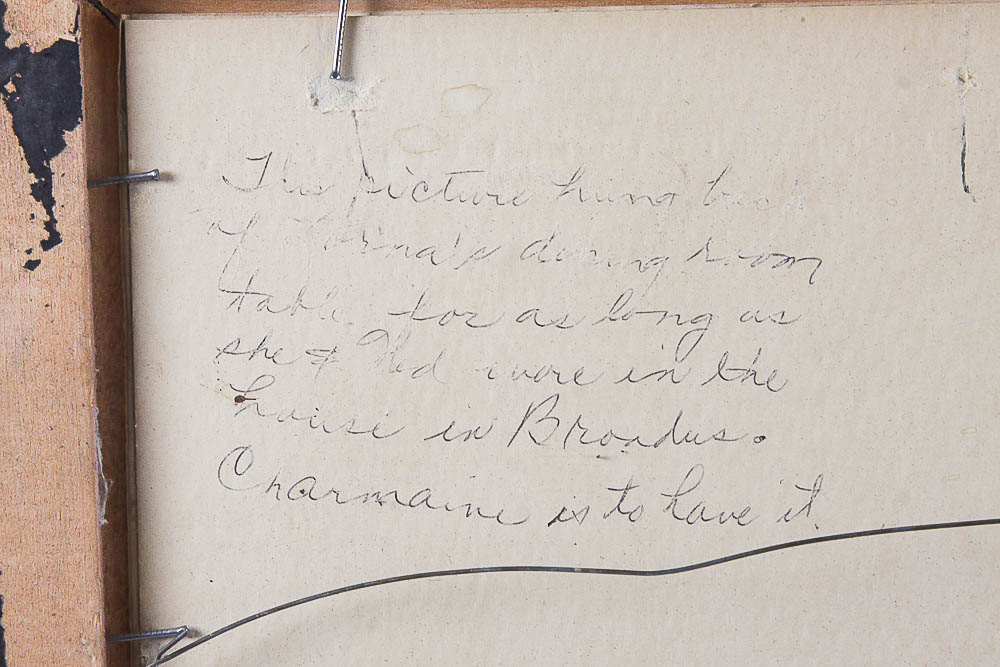 This picture hung back
of dining room
table for as long as
she & Ned were in the
house in Broadus.
Charmaine is to have it.